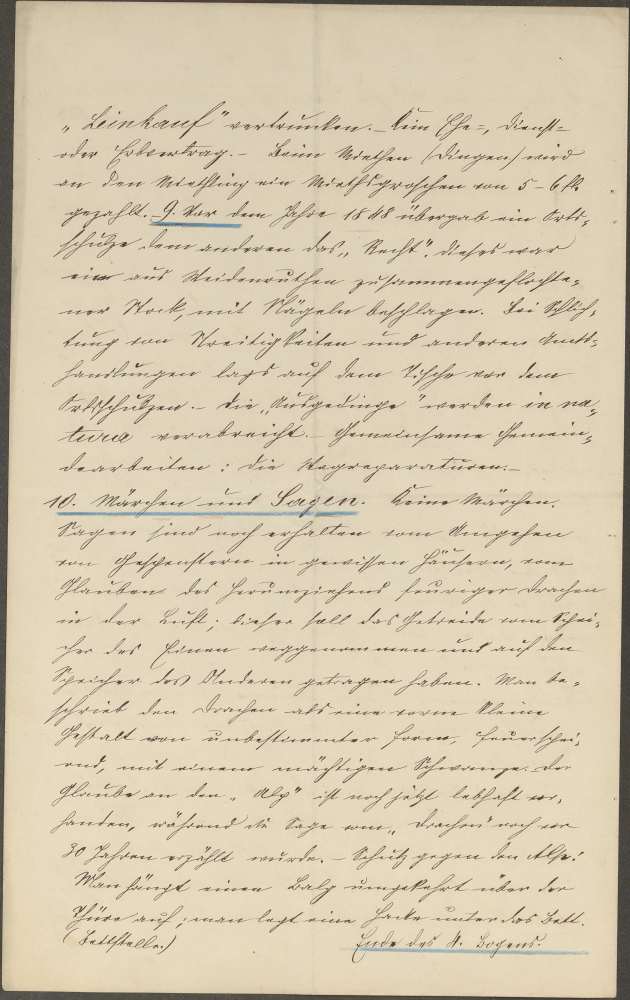 „Leinkauf" vertrunken. – Kein Ehe-, Dienst-
oder Erbvertrag. – Beim Miethen (Dingen) wird
an den Miethling ein Miethsgroschen von 5–6 M
gezahlt. – 9. Vor dem Jahre 1848 übergab ein Orts-
schulze dem anderen das „Recht". Dieses war
ein aus Weidenruthen zusammengeflochte-
ner Stock, mit Nägeln beschlagen. Bei Schlich-
tung von Streitigkeiten und anderen Amts-
handlungen lag's auf dem Tische vor dem
Ortsschulzen. – Die „Ausgedinge" werden in na-
tura verabreicht. – Gemeinsame Gemein-
dearbeiten: die Wegreparaturen. –
10. Märchen und Sagen. Keine Märchen.
Sagen sind noch erhalten vom Umgehen
von Gespenstern in gewissen Häusern, vom
Glauben des Herumziehens feuriger Drachen
in der Luft; dieser soll das Getreide vom Spei-
cher des Einen weggenommen und auf den
Speicher des Anderen getragen haben. Man be-
schrieb den Drachen als eine vorne kleine
Gestalt von unbestimmter Form, feuerschei-
nend, mit einem mächtigen Schwanze. Der
Glaube an den „Alp" ist noch jetzt lebhaft vor-
handen, während die Sage vom „Drachen" noch vor
30 Jahren erzählt wurde. – Schutz gegen den Alp:
Man hängt einen Balg umgekehrt über der
Thüre auf; man legt eine Hacke unter das Bett.
(Bettstelle.) Ende des 4. Bogens.